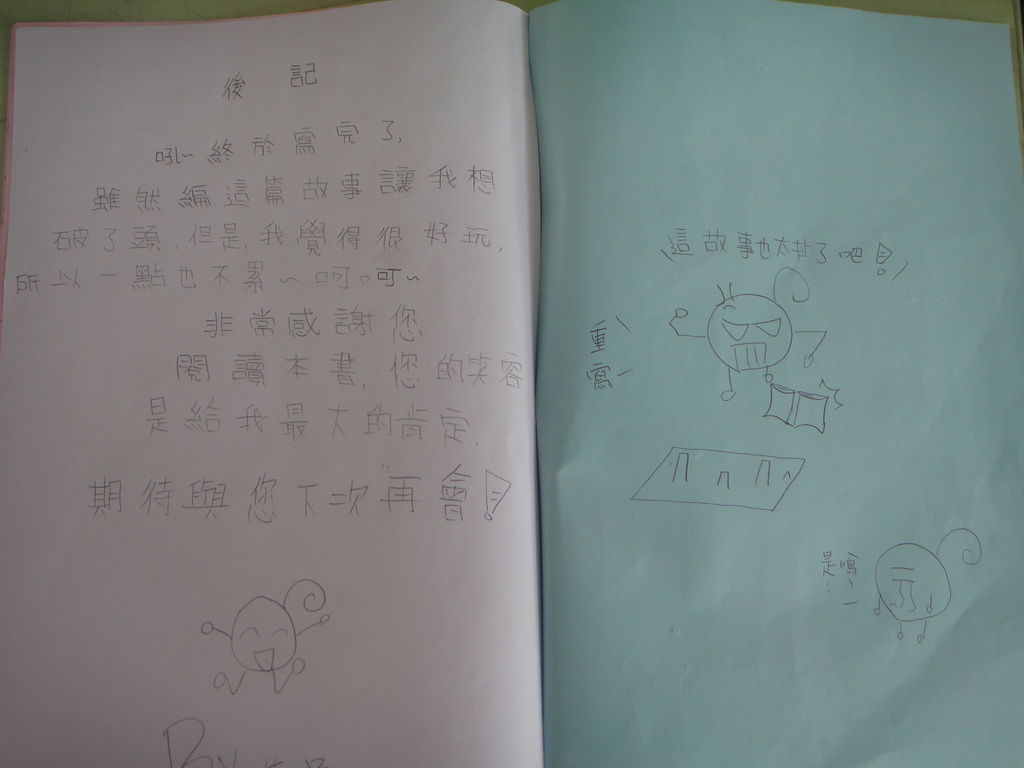 後 記
吼~終於寫完了,
雖然編這篇故事讓我想
破了頭,但是,我覺得很好玩,
所以一點也不累~呵。呵~
非常感謝您
閱讀本書,您的笑容
是給我最大的肯定,
期待與您下次"再會!
By
這故事也太扯了吧!
重寫
是嗚~